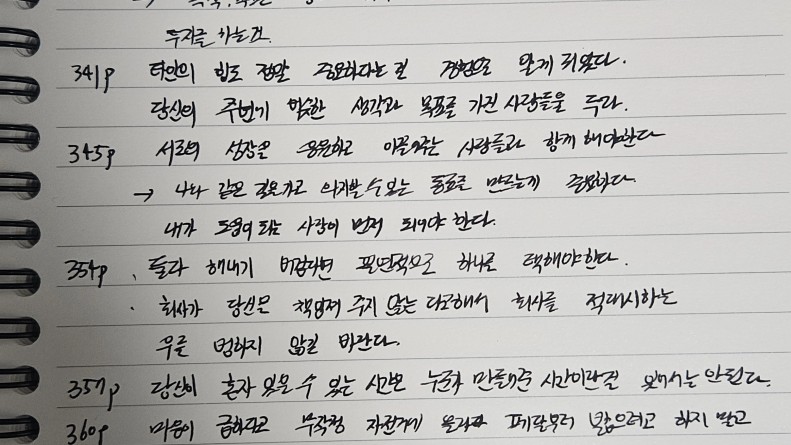 투자를 하는것.
341p 타인의 힘도 정말 중요하다는걸 경험으로 알게 되었다.
당신의 주변에 비슷한 생각과 목표를 가진 사람들을 두라.
345p 서로의 성장을 응원하고 이끌어주는 사람들과 함께 해야한다
→ 나와 같은 길을 가고 의지할 수 있는 동료를 만드는게 중요하다.
내가 도움이 되는 사람이 먼저 되어야 한다.
354p · 둘다 해내기 버겁다면 필연적으로 하나를 택해야한다.
· 회사가 당신을 책임져 주지 않는다고해서 회사를 적대시하는
우를 범하지 않길 바란다.
357p 당신이 혼자 있을 수 있는 시간은 누군가 만들어준 시간이란걸 잊어서는 안된다.
360p 마음이 급하다고 무작정 자전거에 올라타 페달부터 밟으려고 하지 말고